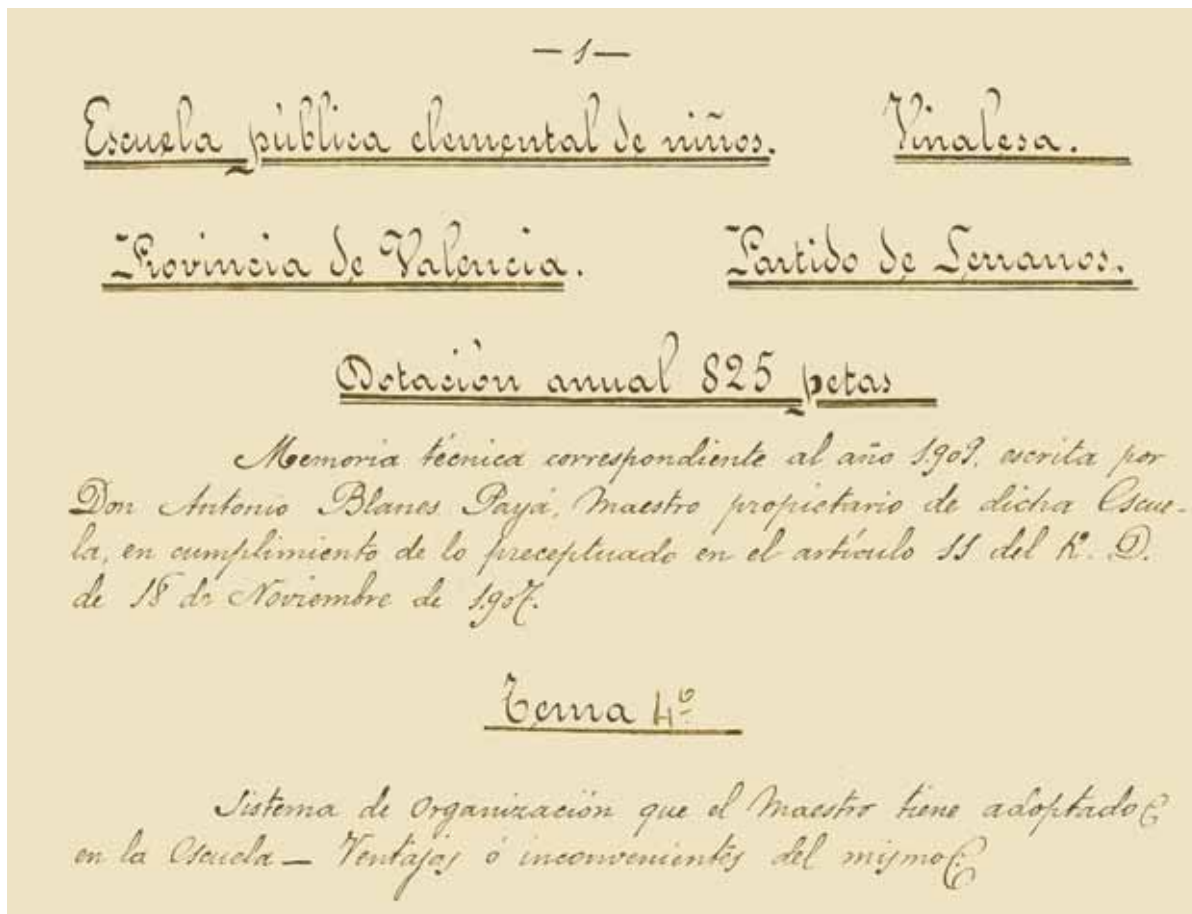 — 1 —
Escuela pública elemental de niños. Vinalesa.
Provincia de Valencia. Partido de Serranos.
Dotación anual 825 petas
Memoria técnica correspondiente al año 1.909, escrita por
Don Antonio Blanes Payá, Maestro propietario de dicha Escue-
la, en cumplimiento de lo preceptuado en el artículo 11 del R. D.
de 18 de Noviembre de 1.907.
Tema 4º
Sistema de organización que el Maestro tiene adoptado
en la Escuela — Ventajas ó inconvenientes del mismo